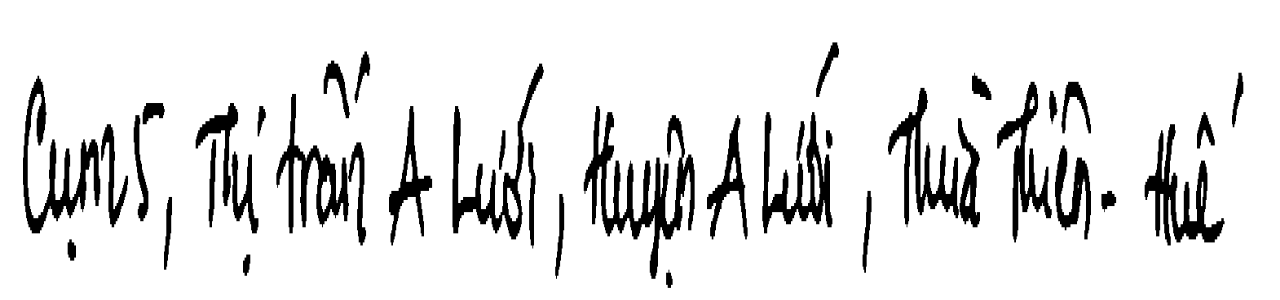 Cụm 5, Thị trấn A Lưới, Huyện A Lưới, Thừa Thiên - Huế